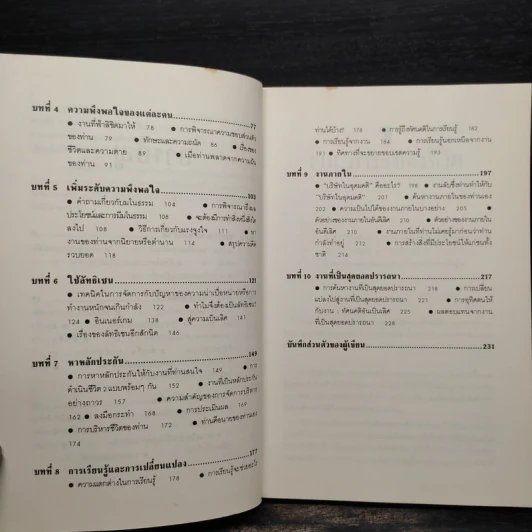 บทที่ 4 ความพึงพอใจของแต่ละคน 77
● งานที่ฟ้าลิขิตมาให้ 78 ● การพิจารณาความชอบส่วนตัว
ของท่าน 79 ● ทักษะและความถนัด 86 ● เรื่องของ
ชีวิตและความตาย 89 ● เมื่อท่านพลาดจากความฝัน
ของท่าน 91
บทที่ 5 เพิ่มระดับความพึงพอใจ 103
● คำถามเกี่ยวกับมโนธรรม 104 ● การพิจารณาถึงผล
ประโยชน์และการมีมโนธรรม 108 ● จะต้องมีการทำสิ่งหนึ่งสิ่งใด
ลงไป 108 ● วิธีการเกี่ยวกับแรงจูงใจ 111 ●
งานของท่านจากนิยายหรือตำนาน 114 ● สรุปความคิด
รวบยอด 118
บทที่ 6 ใช้ลัทธิเซน 121
● เทคนิคในการจัดการกับปัญหาของความน่าเบื่อหน่ายหรือการ
ทำงานหนักจนเกินกำลัง 122 ● ทำไมจึงต้องเป็นลัทธิเซน?
124 ● อินเนอร์เกม 133 ● สู่ความเป็นเลิศ 141
● เรื่องของลัทธิเซนอีกสักนิด 146
บทที่ 7 หาหลักประกัน 149
● การหาหลักประกันให้กับงานที่ท่านสนใจ 149 ● การ
ดำเนินชีวิต 2 แบบพร้อมๆ กัน 152 ● งานที่เป็นหลักประกัน
อย่างถาวร 157 ● ความสำคัญของการจัดการบริหาร
162 ● ลงมือกระทำ 168 ● การประเมินผล 169 ●
● การบริหารชีวิตของท่าน 172 ● ท่านคือนายของท่านเอง
174
บทที่ 8 การเรียนรู้และการเปลี่ยนแปลง 177
● ความแตกต่างในการเรียนรู้ 178 ● การเรียนรู้จะช่วย
ท่านได้บ้าง? ● การรู้ถึงทัศนคติในการเรียนรู้ 182
● การเรียนรู้จากงาน 184 ● การเรียนรู้นอกเหนือจากงาน
191 ● ทิศทางที่จะขยายขอบเขตความรู้ 193
บทที่ 9 งานภายใน 197
● "บริษัทในอุดมคติ" คืออะไร? 197 ● งานลับซึ่งท่านทำให้กับ
"บริษัทในอุดมคติ" 200 ● ค้นหางานภายในของท่านเอง
202 ● ความเป็นไปได้ของงานภายในบางอย่าง 205 ●
ตัวอย่างของงานภายในอันดีเลิศ 210 ● ตัวอย่างของงานภายใน
อันดีเลิศ 210 ● งานภายในที่ท่านไม่เคยรู้มาก่อนว่าท่าน
กำลังทำอยู่ 212 ● การสร้างสิ่งที่มีประโยชน์ให้แก่ชนทั้ง
ชาติ 214
บทที่ 10 งานที่เป็นสุดยอดปรารถนา 217
● การค้นหางานที่เป็นสุดยอดปรารถนา 218 ● การเปลี่ยน
แปลงไปสู่งานที่เป็นสุดยอดปรารถนา 221 ● การอุทิศตนให้
กับงาน : ทัศนคติอันเป็นเลิศ 225 ● ผลตอบแทนจากงาน
ที่เป็นสุดยอดปรารถนา 228
บันทึกส่วนตัวของผู้เขียน 231